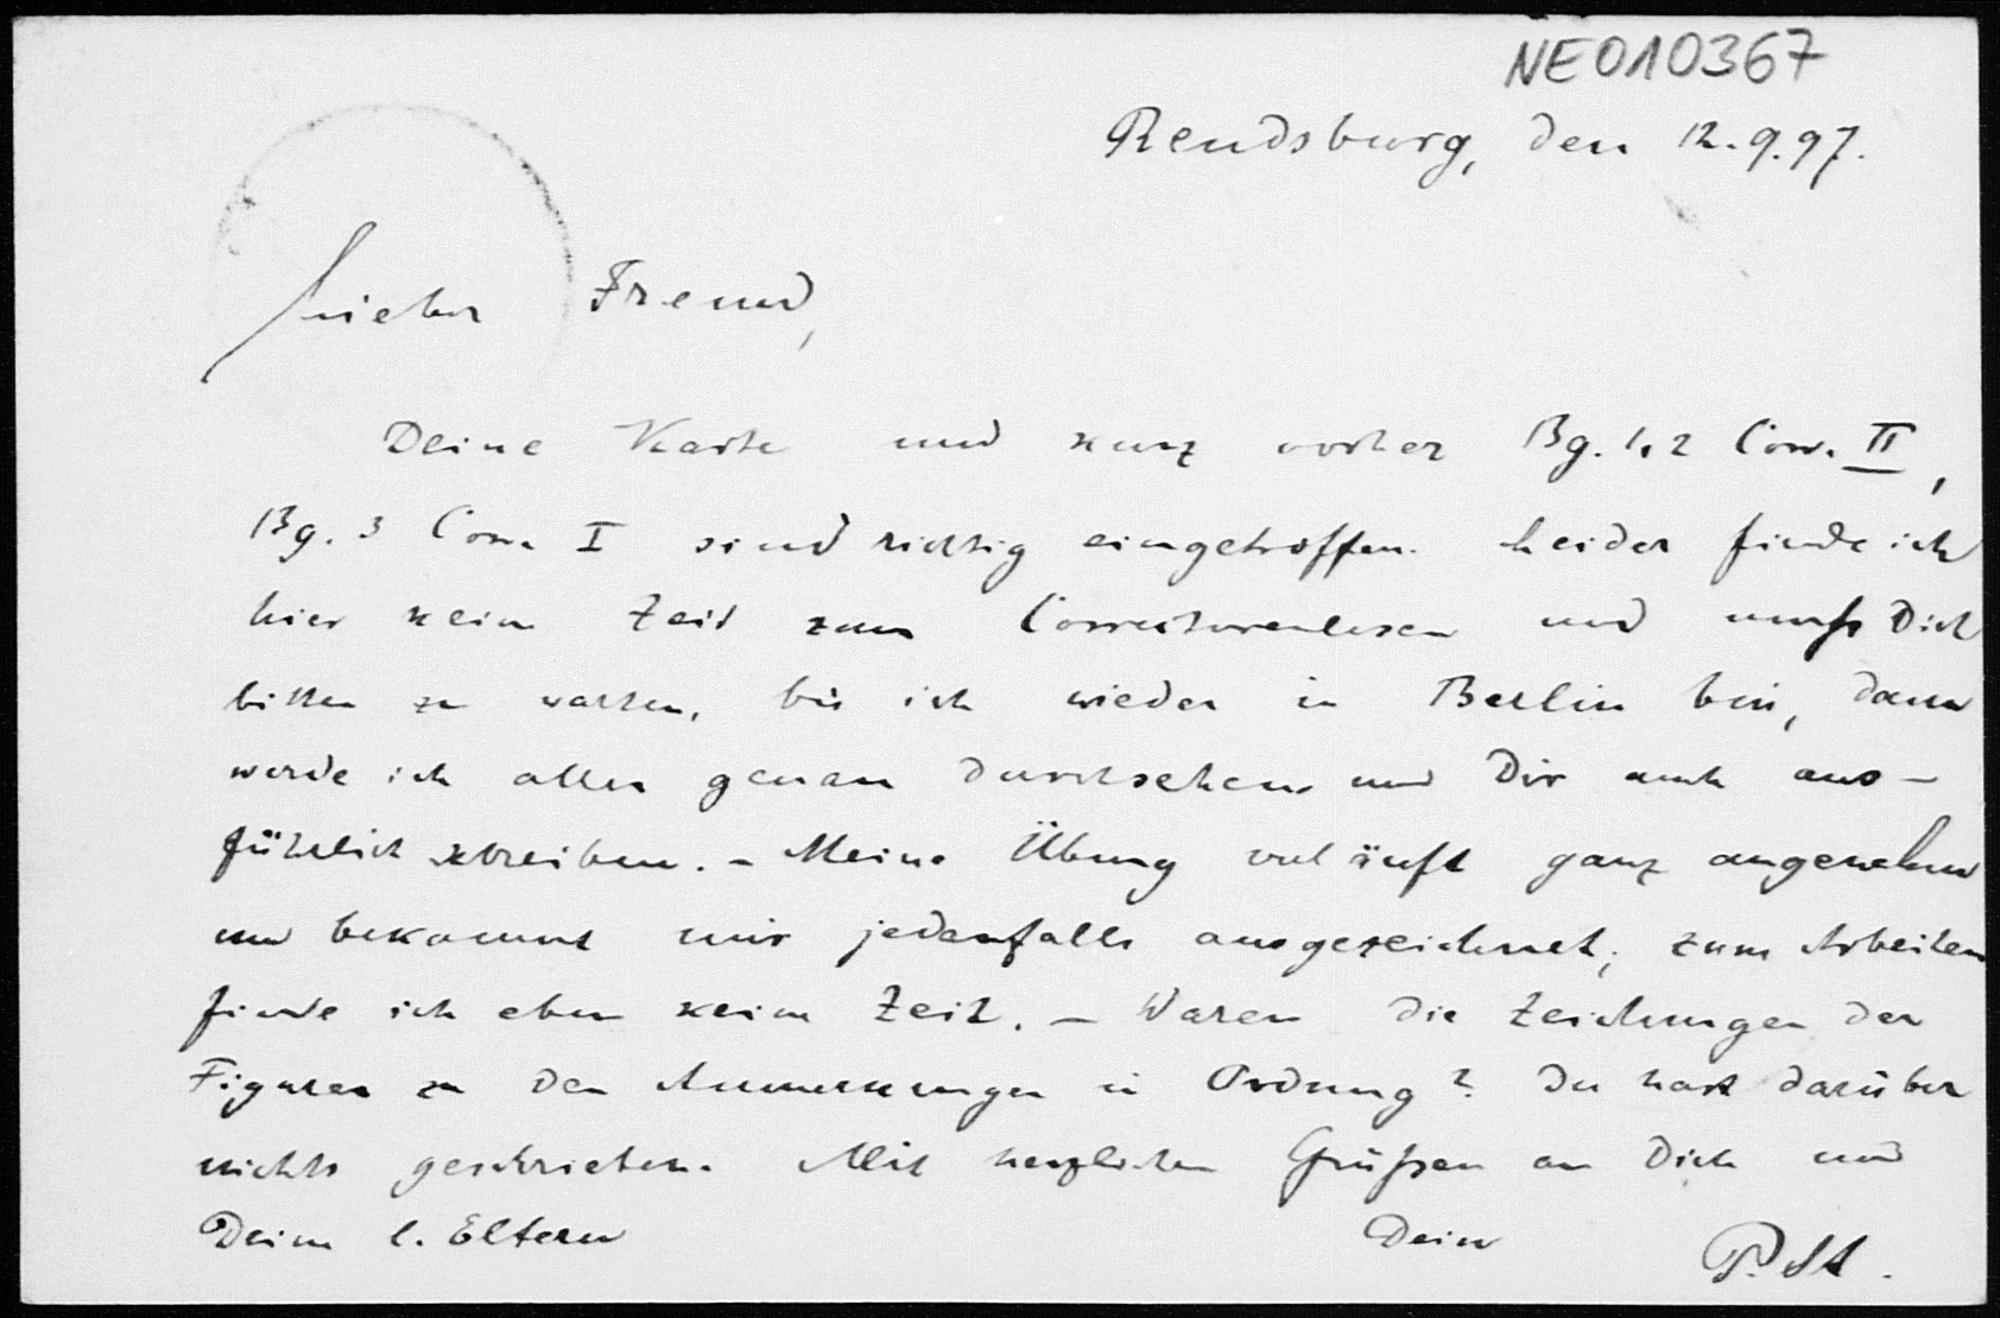 NE010367
Rendsburg, den 12.9.97.
Lieber Freund,
Deine Karte und kurz vorher Bg. 1,2 Corr. II,
Bg. 3 Corr. I sind richtig eingetroffen. Leider finde ich
hier keine Zeit zum Correcturenlesen und muß Dich
bitten zu warten, bis ich wieder in Berlin bin, dann
werde ich alles genau durchsehen und Dir auch aus-
führlich schreiben. – Meine Übung verläuft ganz angenehm
und bekommt mir jedenfalls ausgezeichnet; zum Arbeiten
finde ich eben keine Zeit. – Waren die Zeichnungen der
Figuren zu den Anmerkungen in Ordnung? Du hast darüber
nichts geschrieben. Mit herzlichen Grüßen an Dich und
Deine l. Eltern Dein P. St.